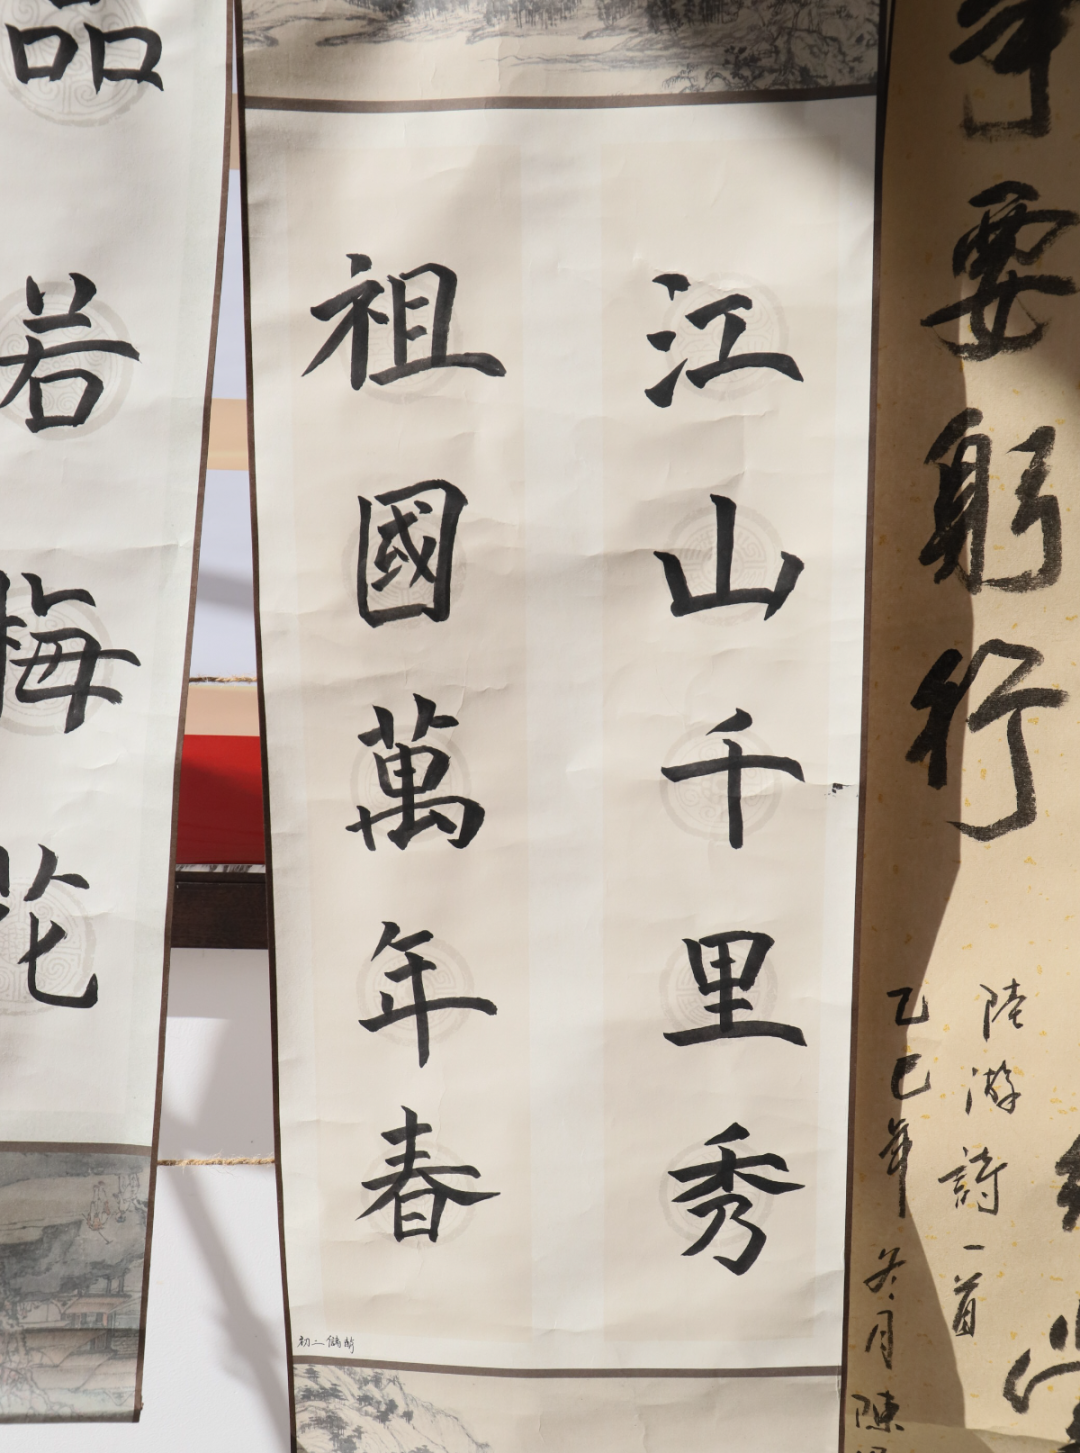 要躬行
陸游詩一首
乙巳年冬月陳
江山千里秀
祖國萬年春
初二
品若梅花